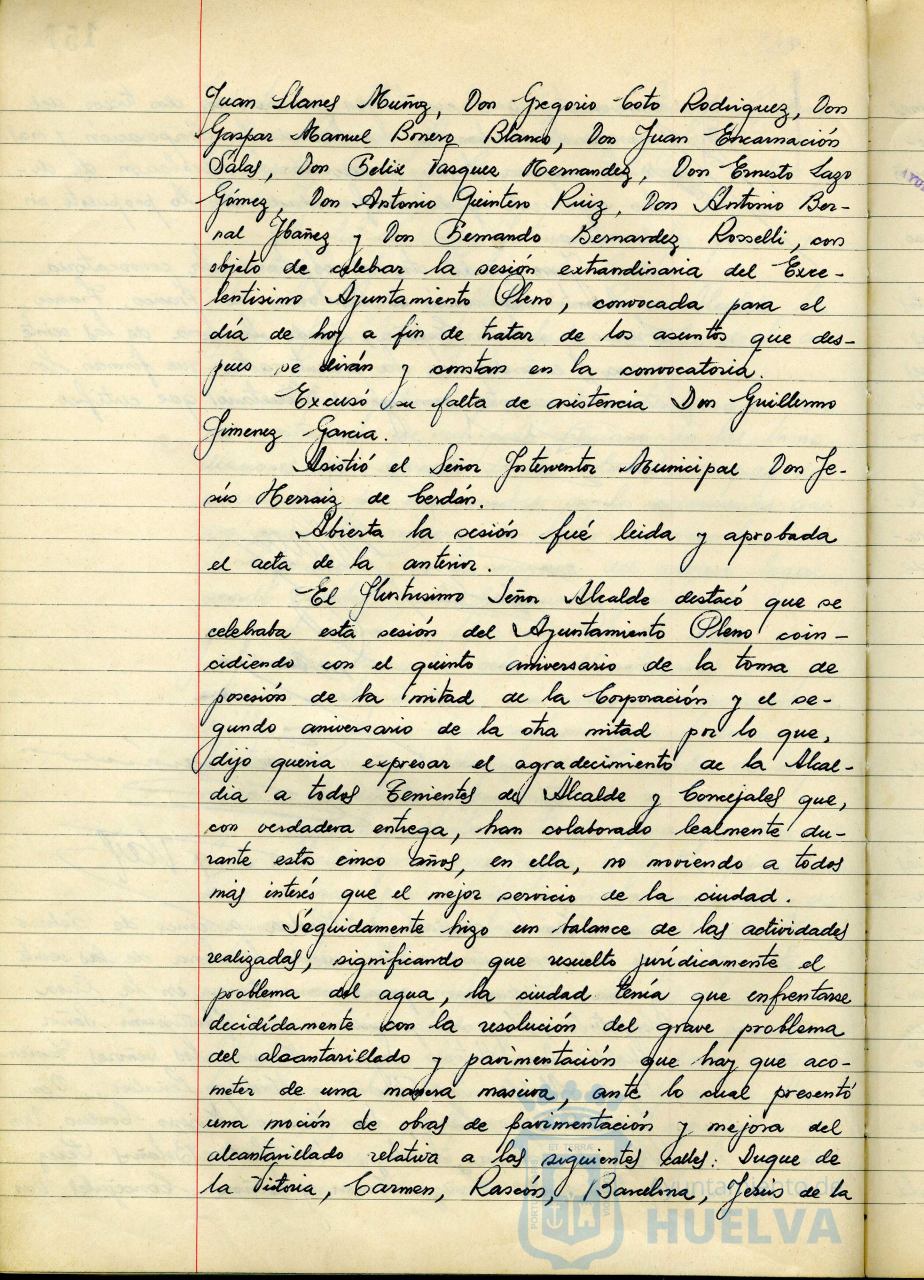 Juan Llanes Muñoz, Don Gregorio Coto Rodriguez, Don
Gaspar Manuel Bonero Blanco, Don Juan Encarnación
Salas, Don Felix Vasquez Hernandez, Don Ernesto Lazo
Gómez, Don Antonio Quintero Ruiz, Don Antonio Ber-
nal Ybañez y Don Fernando Bernardez Rosselli, con
objeto de celebar la sesión extrandinaria del Exce-
lentisimo Ayuntamiento Pleno, convocada para el
día de hoy a fin de tratar de los asuntos que des-
pues se dirán y constan en la convocatoria.
Excusó su falta de asistencia Don Guillermo
Jimenez Garcia.
Asistió el Señor Interventor Municipal Don Je-
sús Herraiz de Cerdán.
Abierta la sesión fué leida y aprobada
el acta de la anterior.
El Ilustrisimo Señor Alcalde destacó que se
celebraba esta sesión del Ayuntamiento Pleno coin-
cidiendo con el quinto aniversario de la toma de
posesión de la mitad de la Corporación y el se-
gundo aniversario de la otra mitad por lo que,
dijo queria expresar el agradecimiento de la Alcal-
dia a todos Tenientes de Alcalde y Concejales que,
con verdadera entrega, han colaborado lealmente du-
rante estos cinco años, en ella, no moviendo a todos
más interés que el mejor servicio de la ciudad.
Seguidamente hizo un balance de las actividades
realizadas, significando que resuelto jurídicamente el
problema del agua, la ciudad tenía que enfrentarse
decididamente con la resolución del grave problema
del alcantarillado y pavimentación que hay que aco-
meter de una manera masiva, ante lo cual presentó
una moción de obras de pavimentación y mejora del
alcantarillado relativa a las siguientes calles: Duque de
la Victoria, Carmen, Rascón, Barcelona, Jesús de la
Ayuntamiento de
HUELVA